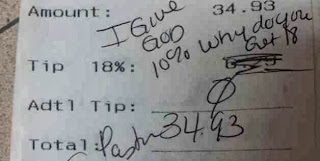 Amount: 34.93
I Give
GOD
10% Why do you
Get 18
Tip 18%:
Adtl Tip: 0
Total: 34.93
Pastor